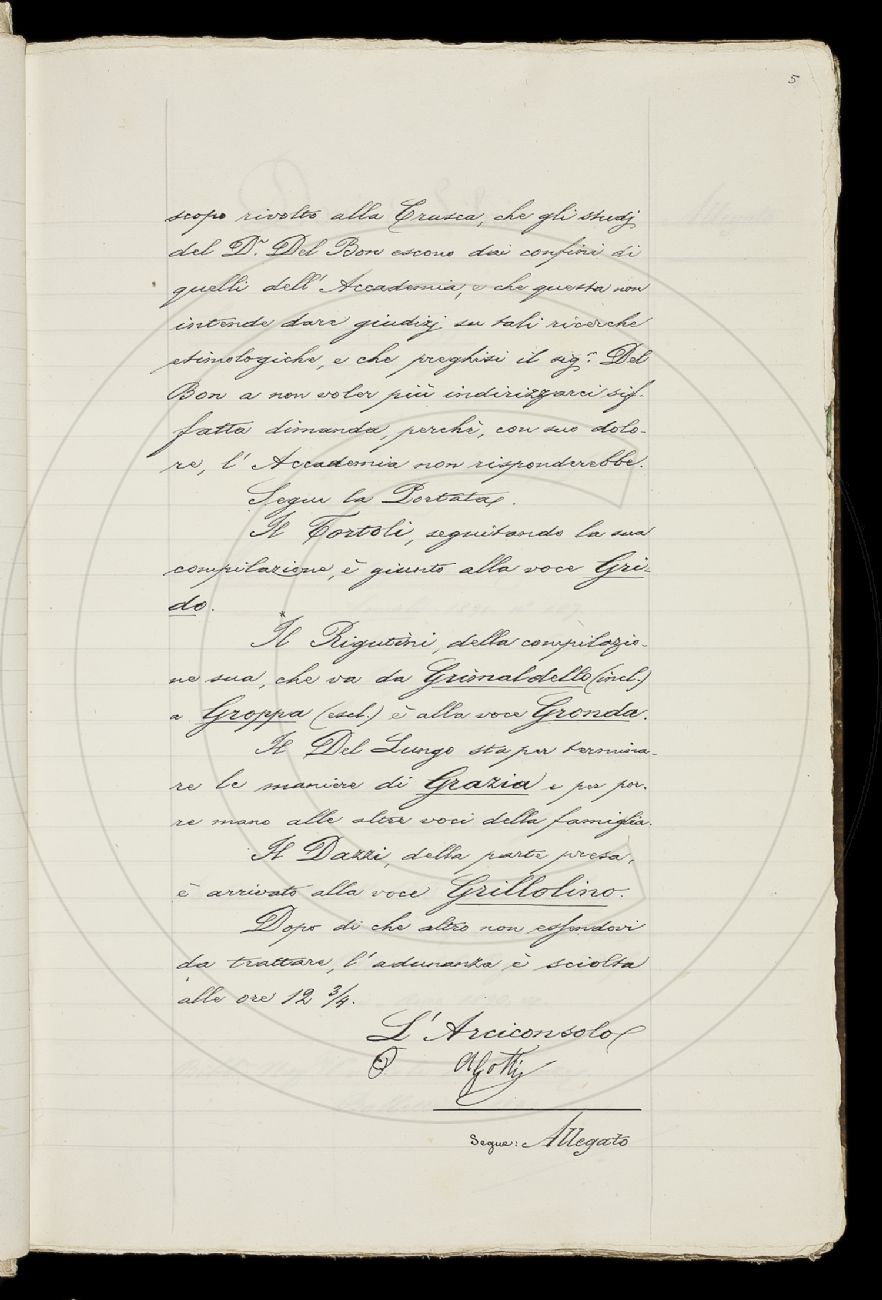 5
scopo rivolto alla Crusca, che gli studj
del Dr. Del Bon escono dai confini di
quelli dell'Accademia, e che questa non
intende dare giudizj su tali ricerche
etimologiche, e che preghisi il sigr. Del
Bon a non voler più indirizzarci sif-
fatta dimanda, perchè, con suo dolo-
re, l'Accademia non risponderebbe.
Segue la Portata.
Il Tortoli, seguitando la sua
compilazione, è giunto alla voce Gri-
do.
Il Rigutini, della compilazio-
ne sua, che va da Grimaldello (incl.)
a Groppa (escl.) è alla voce Gronda.
Il Del Lungo sta per termina-
re le maniere di Grazia e per por-
re mano alle altre voci della famiglia.
Il Dazzi, della parte presa,
è arrivato alla voce Grillolino.
Dopo di che altro non essendovi
da trattare, l'adunanza è sciolta
alle ore 12 3/4.
L'Arciconsolo
AGotti
Segue: Allegato